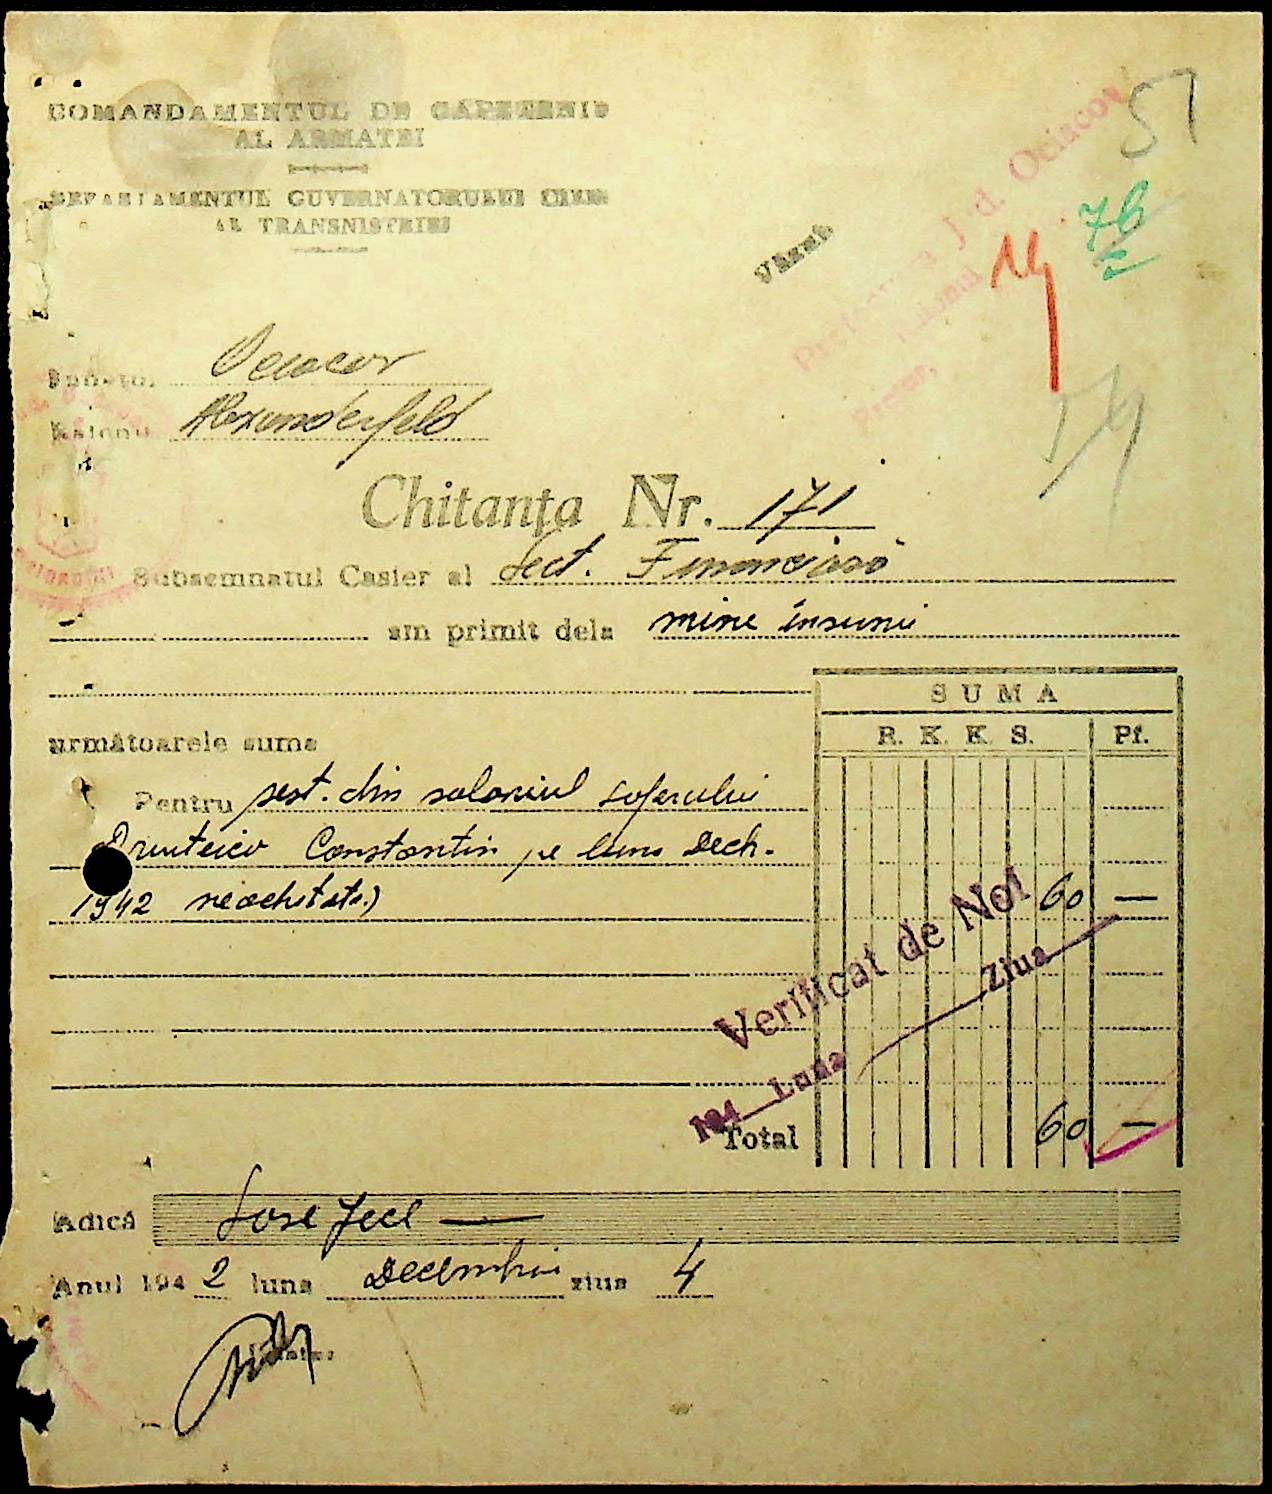 COMANDAMENTUL DE CĂPETENIE
AL ARMATEI
DEPARTAMENTUL GUVERNATORULUI CIVIL
AL TRANSNISTRIEI
51
76
19
Văzut
Prefectura Jud. Oceacov
Județul Oceacov
Raionul Alexanderfeld
Chitanța Nr. 171
Subsemnatul Casier al Sect. Financiară
am primit dela mine însumi
SUMA
următoarele sume
R. K. K. S. Pf.
Pentru rest. din salariul șoferului
Constantin pe luna Dech.
1942 neachitat.) 60 —
Verificat de Noi
194 Luna Ziua
Total 60 —
Adică
Anul 1942 luna Decembrie ziua 4
Casier